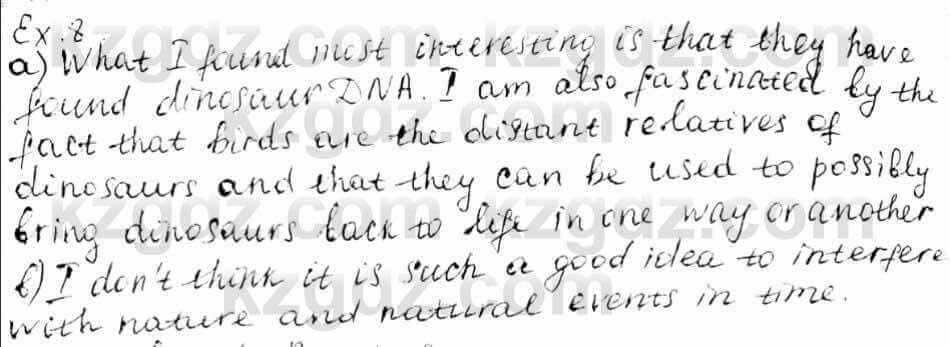 Ex. 8
a) What I found most interesting is that they have
found dinosaur DNA. I am also fascinated by the
fact that birds are the distant relatives of
dinosaurs and that they can be used to possibly
bring dinosaurs back to life in one way or another
b) I don't think it is such a good idea to interfere
with nature and natural events in time.